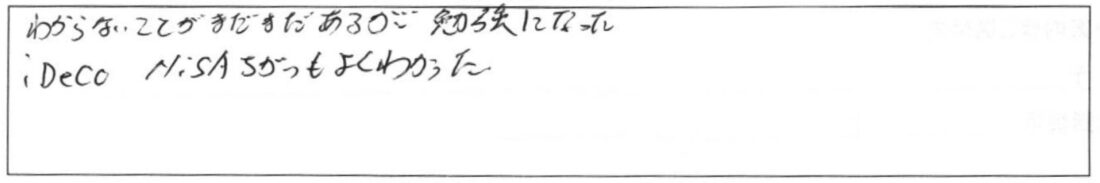 わからないことがまだまだあるがご 勉強になった
iDeCo NiSA ちがつもよくわかった